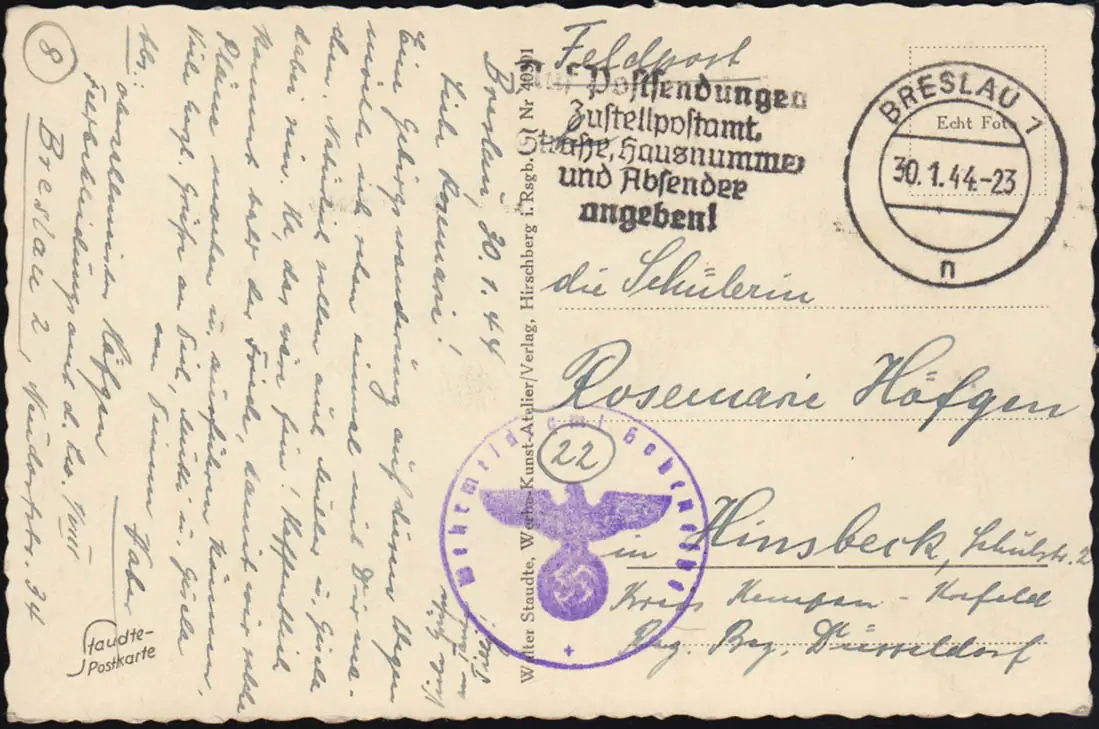 Feldpost
Auf Postsendungen
Zustellpostamt,
Straße, Hausnummer
und Absender
angeben!
BRESLAU 1
30.1.44.-23
n
Echt Foto
die Schülerin
Rosemarie Höfgen
22
in Hinsbeck, Schulstr. 2
Kreis Kempen - Krefeld
Reg. Bez. Düsseldorf
Walter Staudte, Werbe-Kunst-Atelier/Verlag, Hirschberg i. Rsgb.
Nr
Breslau, 30.1.44
Liebe Rosemarie!
Eine Gebirgswanderung auf diesen Wegen
möchte ich schon einmal mit Dir ma-
chen. Natürlich sollen auch Mutter u. Gisela
dabei sein. Na, das wäre fein! Hoffentlich
kommt bald der Friede, damit wir solche
Pläne machen u. ausführen können.
Viele herzl. Grüße an Dich, Mutti u. Gisela
von Deinem Vater.
Abs.: Oberzahlmeister Höfgen
Breslau 2, 34
8
Staudte-
Postkarte